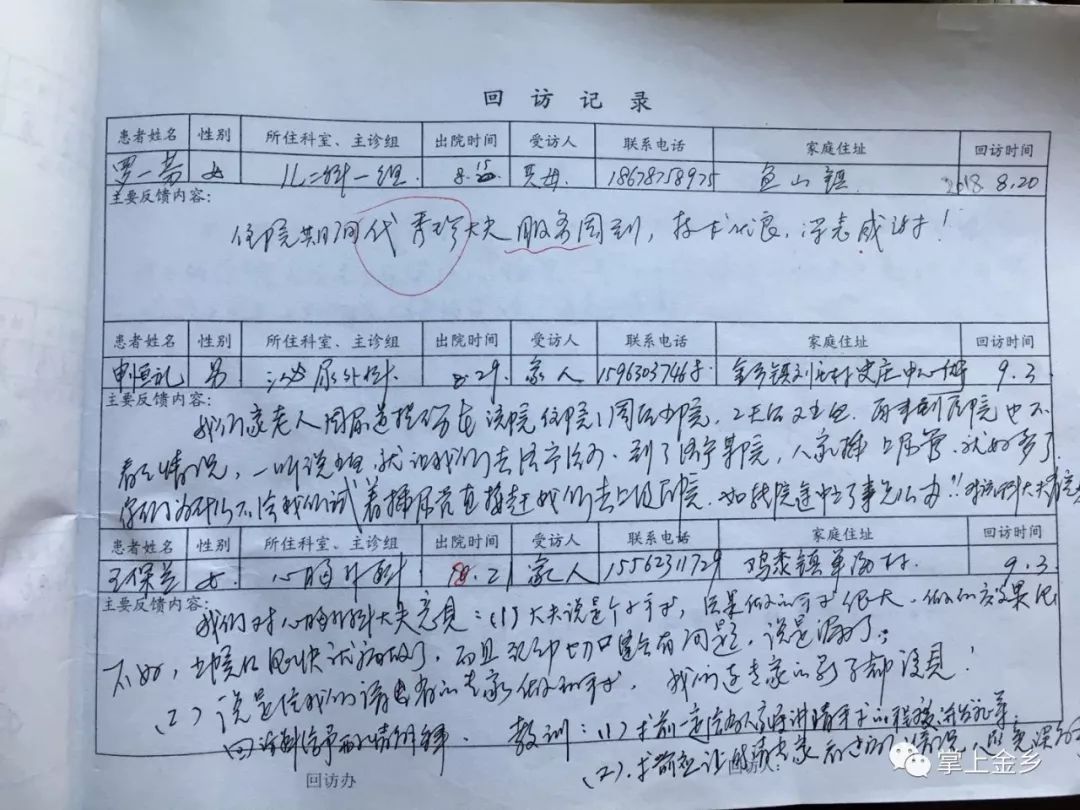 回访记录
患者姓名 性别 所住科室、主诊组 出院时间 受访人 联系电话 家庭住址 回访时间
罗一 女 儿二科一组. 8. 15 其母. 18678758975 鱼山镇 2018 8.20
主要反馈内容:
住院期间代秀珍大夫服务周到,技术优良,深表感谢!
患者姓名 性别 所住科室、主诊组 出院时间 受访人 联系电话 家庭住址 回访时间
申恒礼 男 泌尿外科 8.29 家人 金乡镇 9.3
主要反馈内容:
我们家老人因尿道损伤在该院住院1周后出院,2天后又出血.再来到医院也不
看情况,一听说出血,就让我们去济宁治.到了济宁某院,人家插上尿管.就好多了
你们为什么不给我们试着插尿管直接赶我们去上级医院.如转院途中出了事怎么办!!对该科大夫有意
患者姓名 性别 所住科室、主诊组 出院时间 受访人 联系电话 家庭住址 回访时间
王保兰 女. 心胸外科 8.21 家人 15562311729 鸡黍镇 9.3
主要反馈内容:
我们对心胸外科大夫意见:(1)大夫说是个小手术,但是做的手术很大.做的效果还
不好,而且现在切口愈合有问题,说是
(2)说是给我们请省的专家做的手术,我们连专家的影子都没见!
教训:(1)术前一定给病人家属讲清手术的
(2).术前应让
回访办
掌上金乡